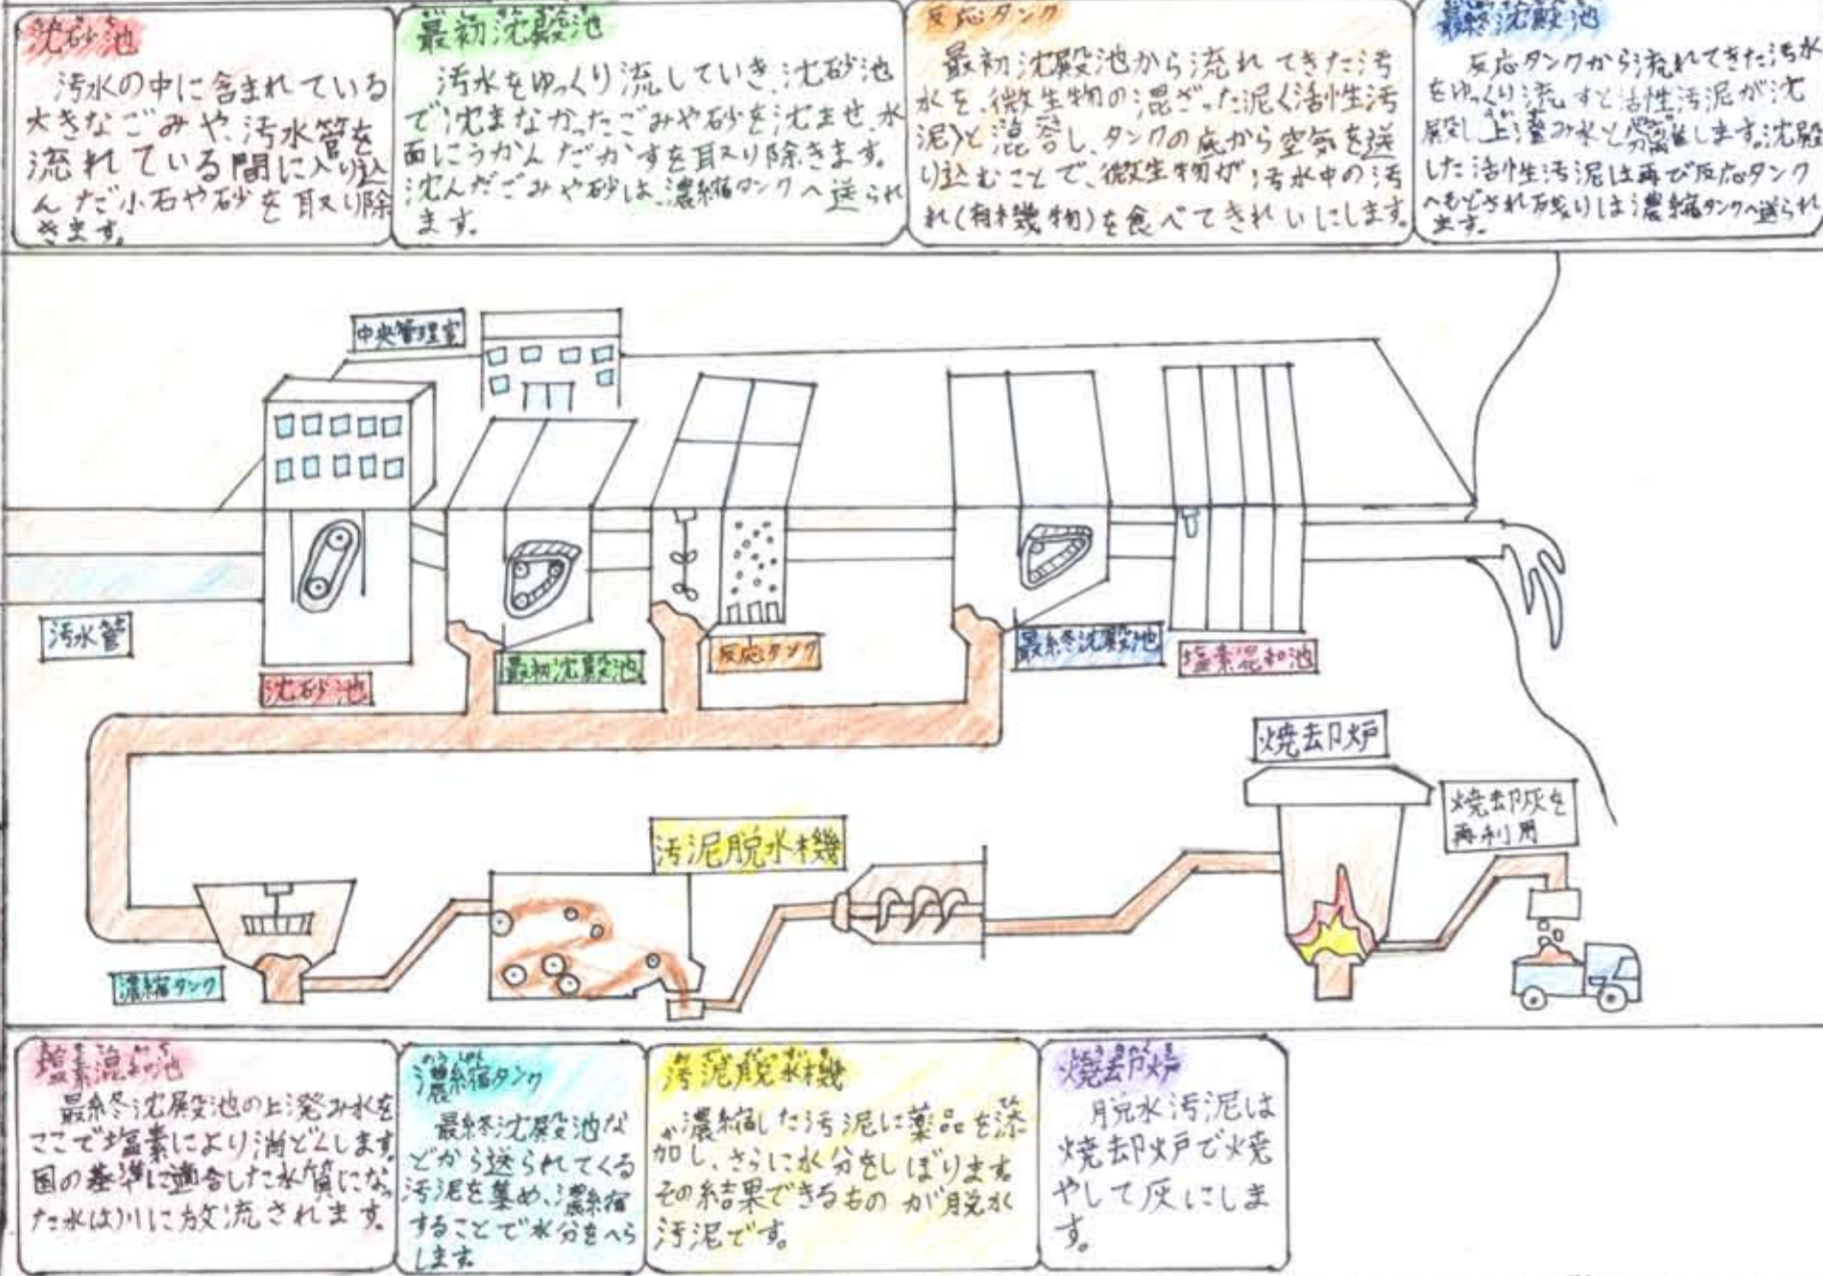 沈砂池
汚水の中に含まれている
大きなごみや、汚水管を
流れている間に入り込
んだ小石や砂を取り除
きます。
最初沈殿池
汚水をゆっくり流していき、沈砂池
で沈まなかったごみや砂を沈ませ、水
面にうかんだかすを取り除きます。
沈んだごみや砂は、濃縮タンクへ送られ
ます。
反応タンク
最初沈殿池から流れてきた汚
水を、微生物の混ざった泥(活性汚
泥)と混合し、タンクの底から空気を送
り込むことで、微生物が汚水中の汚
れ(有機物)を食べてきれいにします。
最終沈殿池
反応タンクから流れてきた汚水
をゆっくり流すと活性汚泥が沈
殿し上澄み水と分離します。沈殿
した活性汚泥は再び反応タンク
へもどされ残りは濃縮タンクへ送られ
ます。
中央管理室
汚水管
沈砂池
最初沈殿池
反応タンク
最終沈殿池
塩素混和池
焼却炉
焼却灰を
再利用
汚泥脱水機
濃縮タンク
塩素混和池
最終沈殿池の上澄み水を
ここで塩素により消どくします。
国の基準に適合した水質になっ
た水は川に放流されます。
のうしゅく
濃縮タンク
最終沈殿池な
どから送られてくる
汚泥を集め、濃縮
することで水分をへら
します。
汚泥脱水機
濃縮した汚泥に薬品を添
加し、さらに水分をしぼります。
その結果できるものが脱水
汚泥です。
焼却炉
脱水汚泥は
焼却炉で焼
やして灰にしま
す。